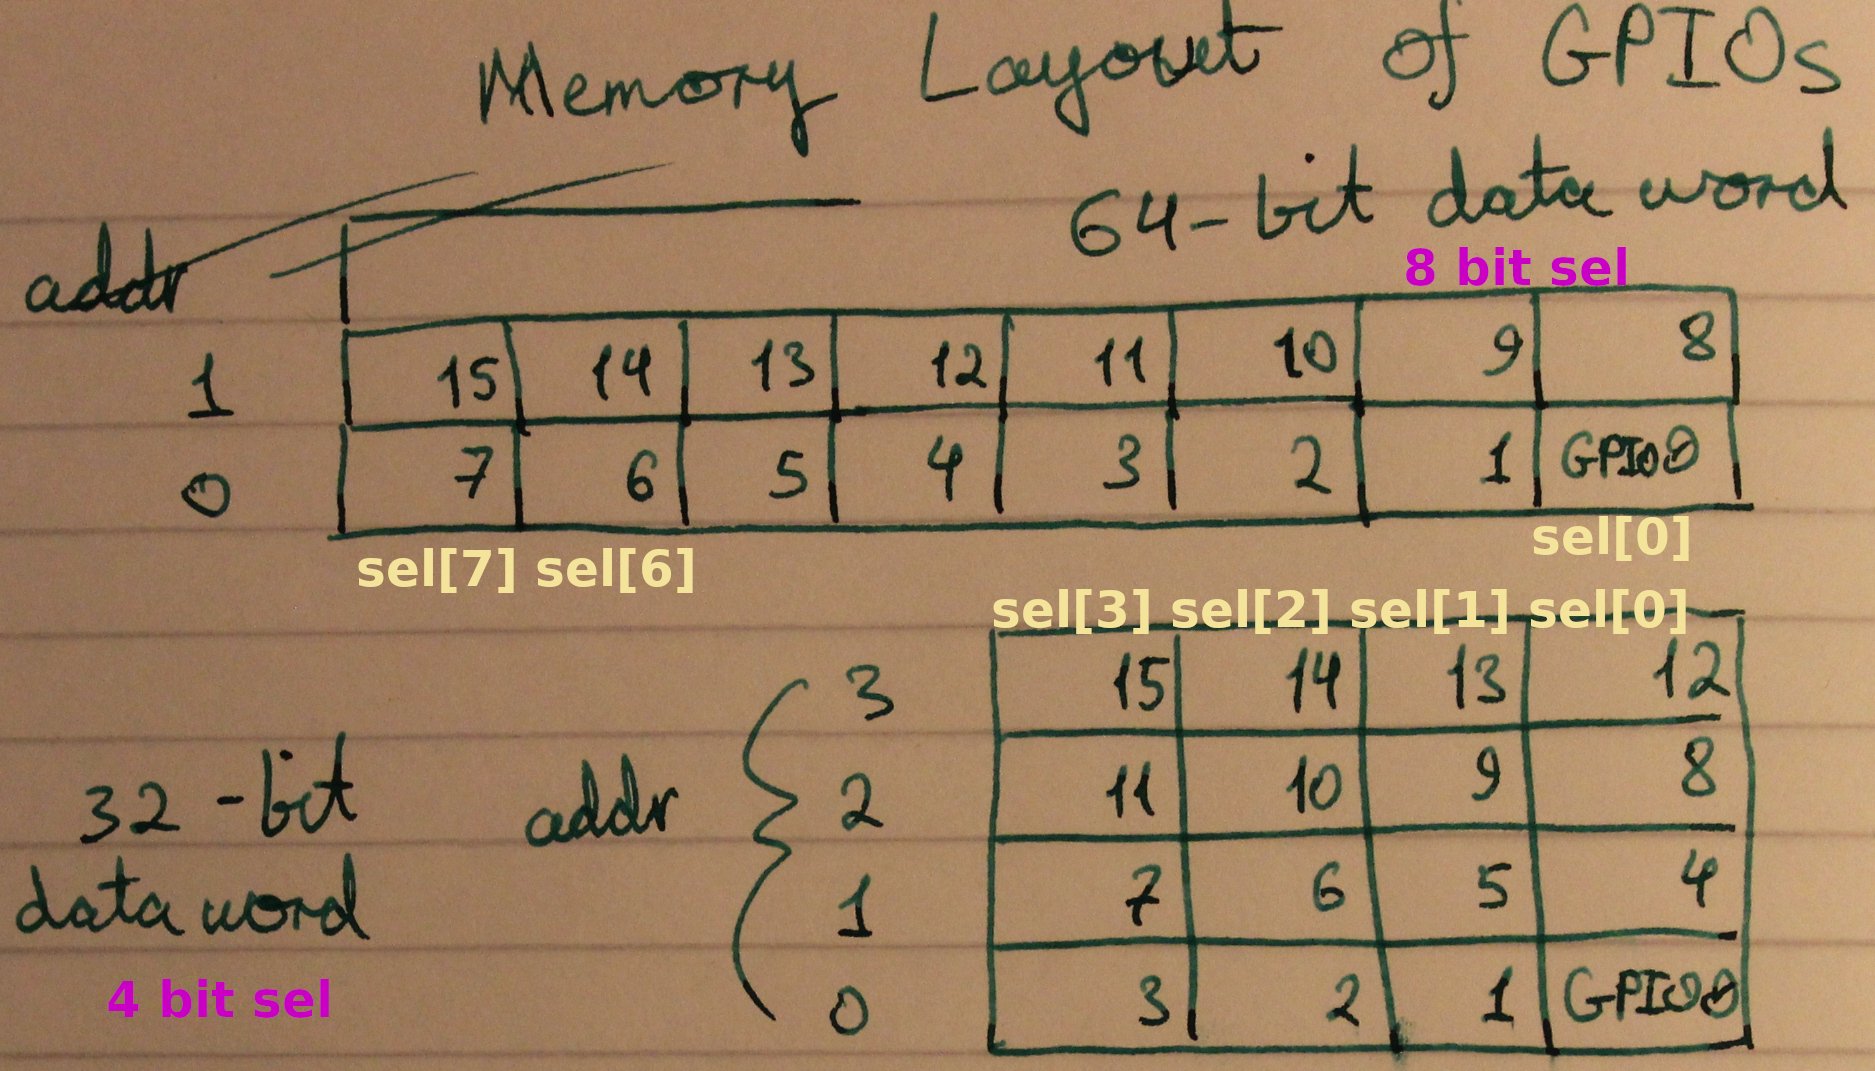 Memory Layout of GPIOs
64-bit data word
8 bit sel
addr
1 15 14 13 12 11 10 9 8
0 7 6 5 4 3 2 1 GPIO0
sel[7] sel[6] sel[0]
sel[3] sel[2] sel[1] sel[0]
3 15 14 13 12
2 11 10 9 8
1 7 6 5 4
0 3 2 1 GPIO0
addr
32-bit
data word
4 bit sel